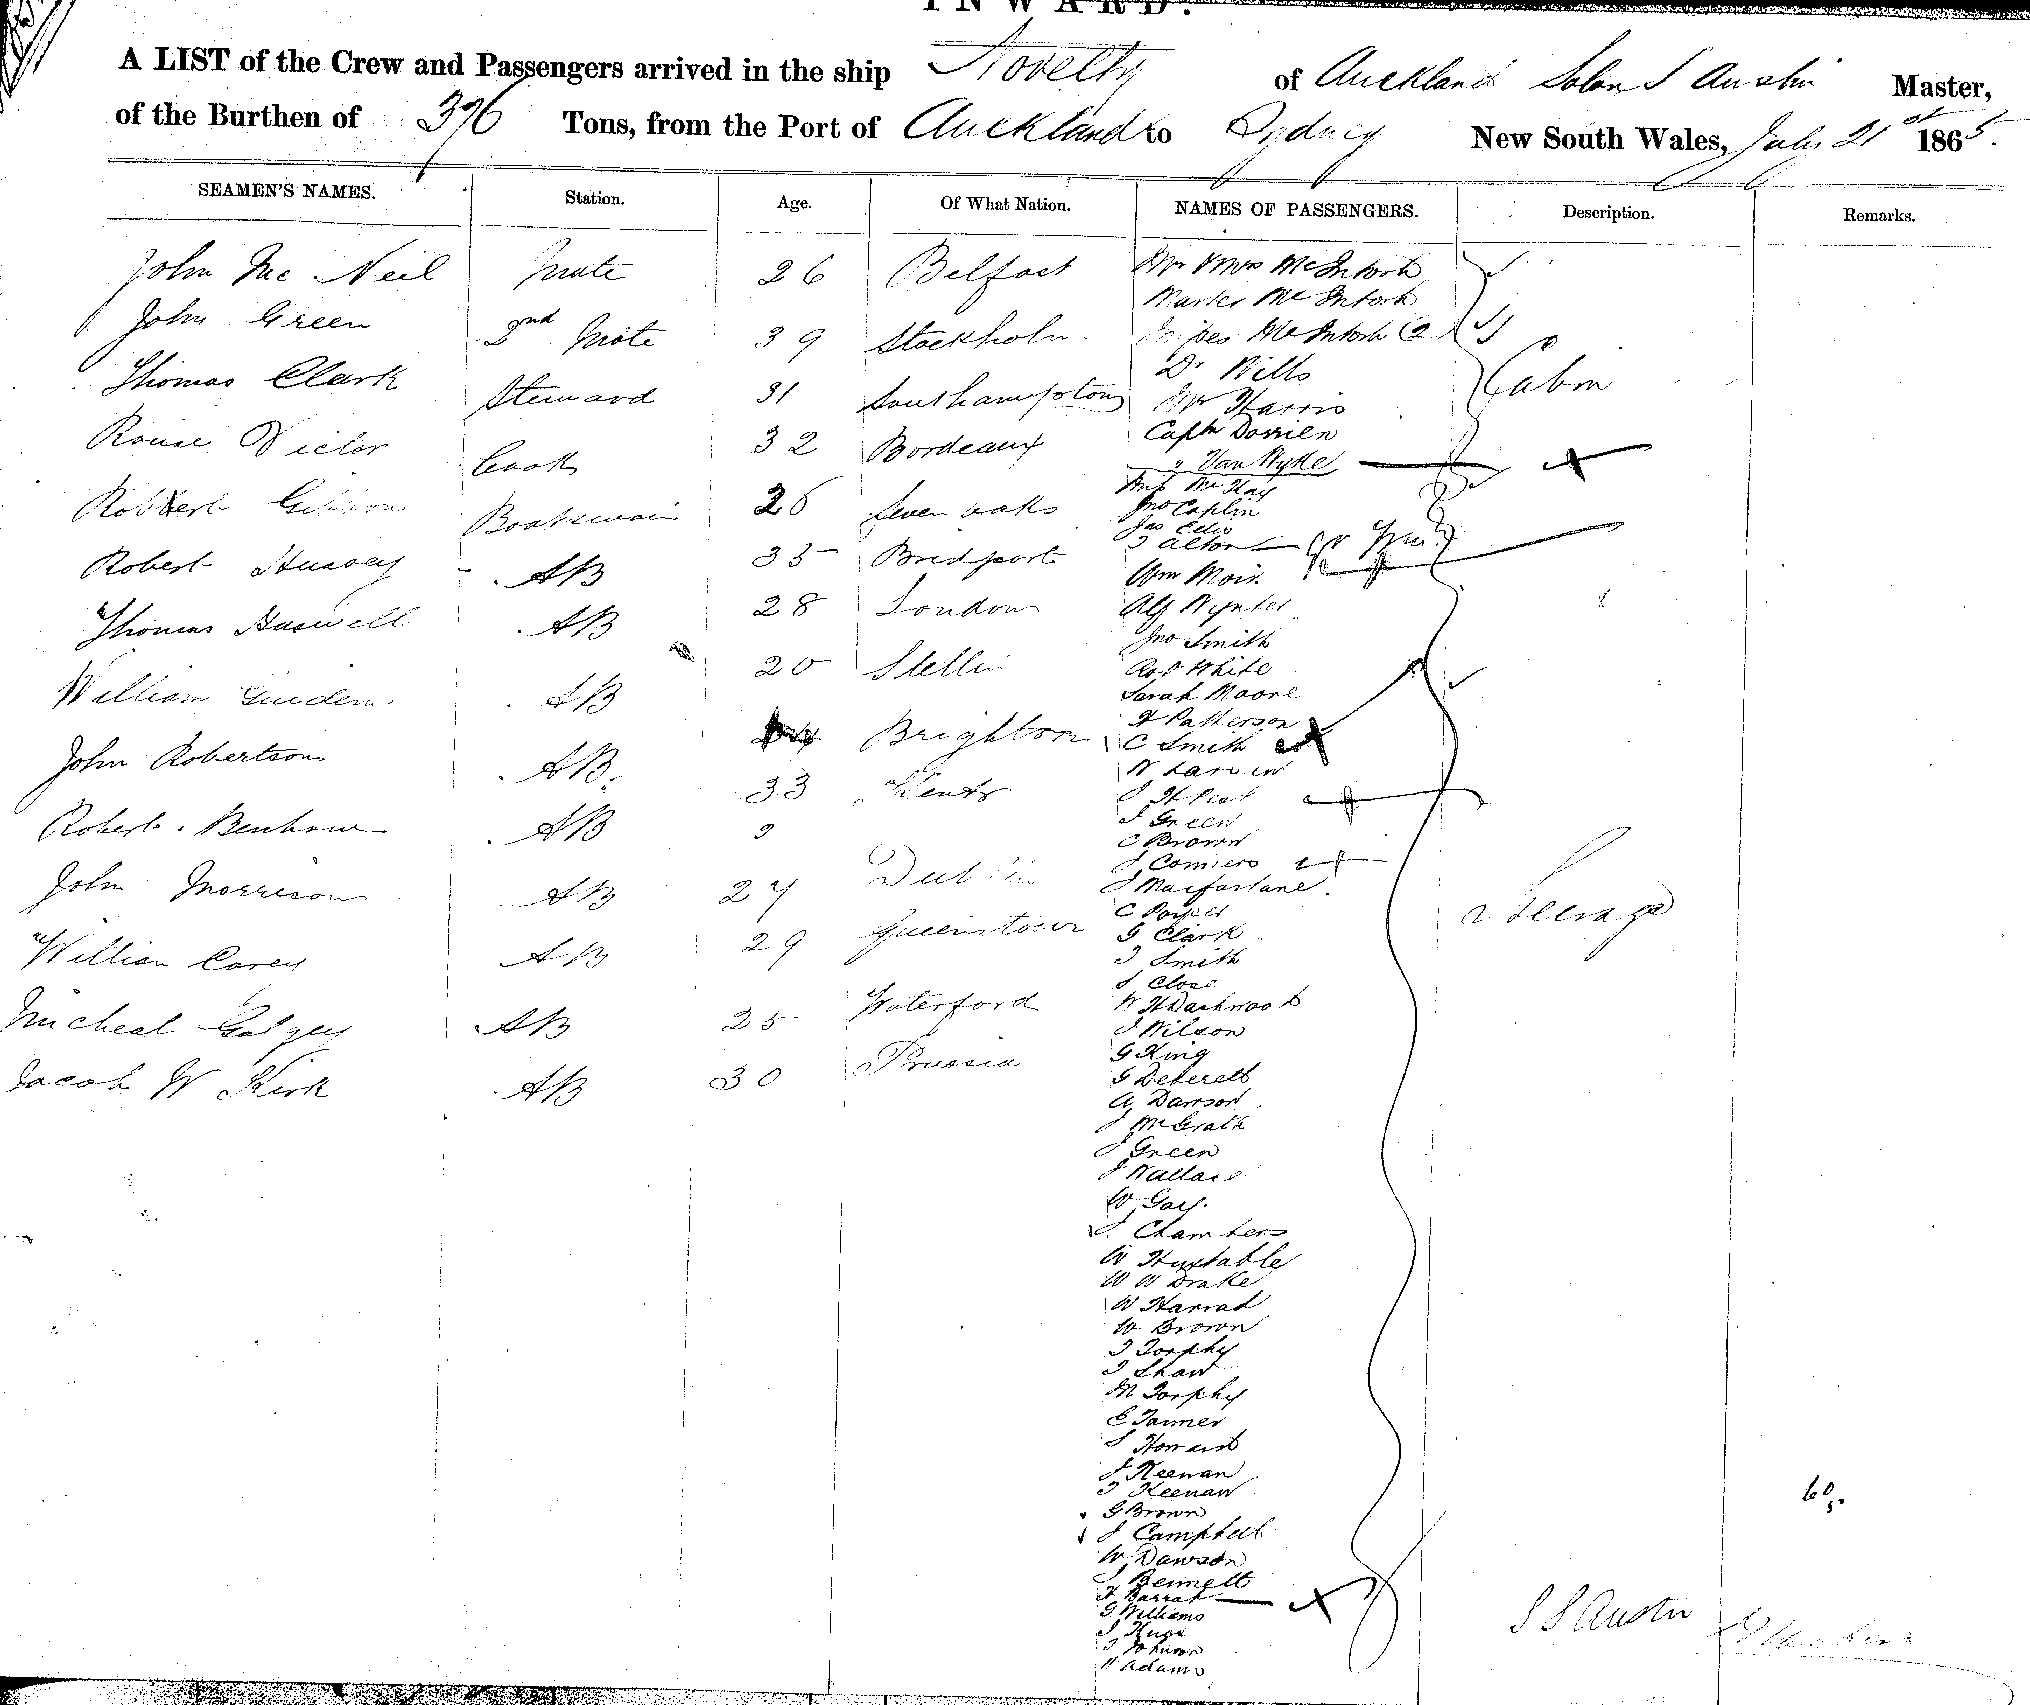 INWARD.
A LIST of the Crew and Passengers arrived in the ship Novelty of Auckland Solon S Austin Master,
of the Burthen of 376 Tons, from the Port of Auckland to Sydney New South Wales, July 21st 1865.
SEAMEN'S NAMES. Station. Age. Of What Nation. NAMES OF PASSENGERS. Description. Remarks.
John Mc Neil Mate 26 Belfast
John Green 2nd Mate 39 Stockholm
Thomas Clark Steward 31 Southampton
Rouse Victor Cook 32 Bordeaux
Robert Gibson Boatswain 26 Seven oaks
Robert Hussey AB 35 Bridport
Thomas Haswell AB 28 London
William AB 20 Stettin
John Robertson AB Brighton
Robert Benhow AB 33 Kent
John Morrison AB 27 Dublin
William Carey AB 29 Queenstown
Micheal AB 25 Waterford
Jacob W Kirk AB 30 Prussia
Mr & Mrs McIntosh
Master McIntosh
McIntosh (2)
Dr Wills
Mr Harris
Captn Dorrien
" Van Wyke
Cabin
McKay
Jno Caplin
Jas Edis
T Alton
Wm Moir
Alf Wynter
Jno Smith
Robt White
Sarah Moore
H Patterson
C Smith
W
J H
J Green
C Brown
J
J Macfarlane
C Porter
G Clark
T Smith
J Close
W H Dashwood
J Wilson
G King
G Deverell
A Dawson
J McGrath
J Green
J Wallace
W Gay.
J. Chambers
W Huxtable
W W Drake
W Harrad
W Brown
T Torphy
T Shaw
M Torphy
E Tanner
S Howard
J Keenan
T Keenan
G Brown
J Campbell
W Dawson
J Bennett
H Barrat
G Williams
J
T Johnson
W Adams
Steerage
60
S S Austin